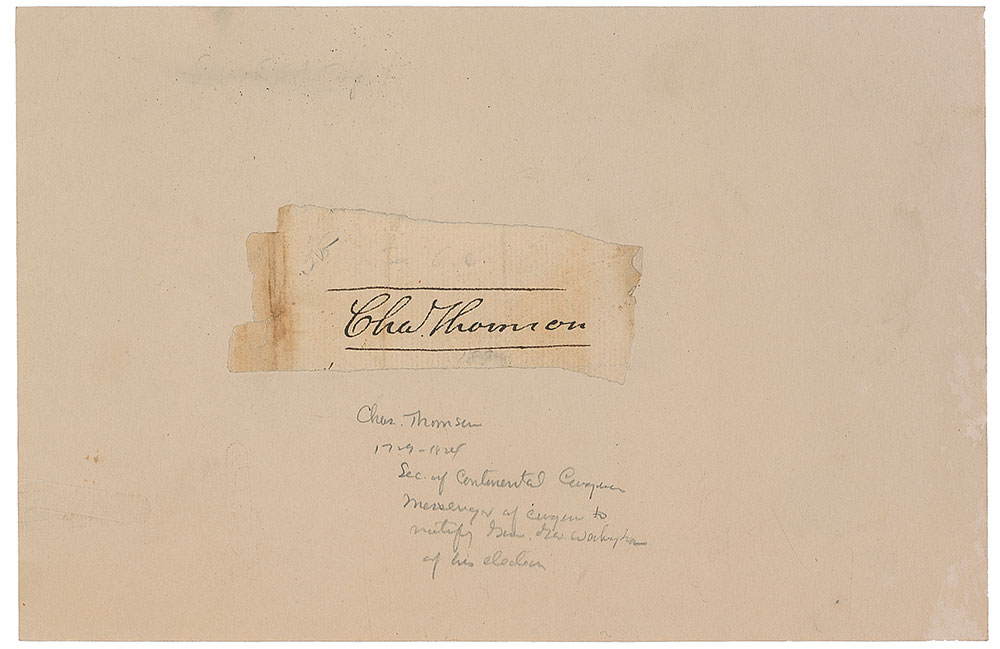 Chas. Thomson
Chas. Thomson
1729-1824
Sec. of Continental Congress
Messenger of Congress to
notify Gen. Geo Washington
of his election